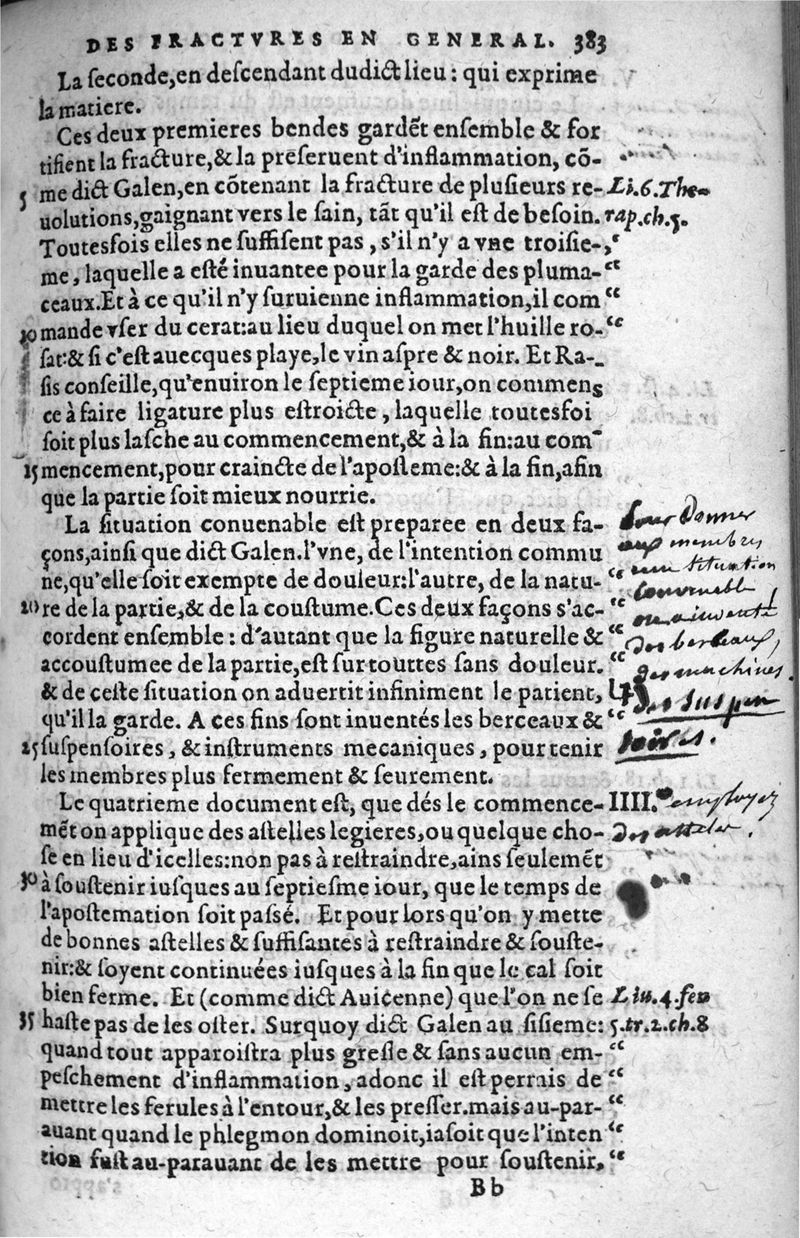 DES FRACTVRES EN GENERAL. 383
La ſeconde,en deſcendant dudict lieu : qui exprime
la matiere.
Ces deux premieres bendes gardẽt enſemble & for
tifient la fracture,& la preſeruent d'inflammation, cõ-
5 me dict Galen,en cõtenant la fracture de pluſieurs re- Li.6.The-
uolutions,gaignant vers le ſain, tãt qu'il eſt de beſoin. rap.ch.5.
Toutesfois elles ne ſuffiſent pas , s'il n'y a vne troiſie-,‘
me , laquelle a eſté inuantee pour la garde des pluma-“
ceaux.Et à ce qu'il n'y ſuruienne inflammation,il com “
10 mande vſer du cerat:au lieu duquel on met l'huille ro-“
ſat:& ſi c'eſt auecques playe,le vin aſpre & noir. Et Ra-
ſis conſeille,qu'enuiron le ſeptieme iour,on commens
ce à faire ligature plus eſtroicte , laquelle toutesfoi
ſoit plus laſche au commencement,& à la fin:au com-
15 mencement,pour craincte de l'apoſteme:& à la fin,afin
que la partie ſoit mieux nourrie.
La ſituation conuenable eſt preparee en deux fa- pour donner
çons,ainſi que dict Galen.l'vne, de l'intention commu aux membres
ne,qu'elle ſoit exempte de douleur:l'autre, de la natu-“ une situation
20 re de la partie,& de la couſtume.Ces deux façons s'ac-“ convenable
cordent enſemble : d'autant que la figure naturelle &“ on a inventé
accouſtumee de la partie,eſt ſur touttes ſans douleur.“ des berceaux,
& de ceſte ſituation on aduertit infiniment le patient, des machines.
qu'il la garde. A ces fins ſont inuentés les berceaux &“ des suspen
25 ſuſpenſoires , & inſtruments mecaniques , pour tenir soires.
les membres plus fermement & ſeurement.
Le quatrieme document eſt, que dés le commence- IIII. employez
mẽt on applique des aſtelles legieres,ou quelque cho- des attelles.
ſe en lieu d'icelles:non pas à reſtraindre,ains ſeulemẽt
30 à ſouſtenir iuſques au ſeptieſme iour, que le temps de
l'apoſtemation ſoit paſſé. Et pour lors qu'on y mette
de bonnes aſtelles & ſuffiſantes à reſtraindre & ſouſte-
nir:& ſoyent continuées iuſques à la fin que le cal ſoit
bien ferme. Et (comme dict Auicenne) que l'on ne ſe Liu.4.fen
35 haſte pas de les oſter. Surquoy dict Galen au ſiſieme: 5.tr.2.ch.8
quand tout apparoiſtra plus greſle & ſans aucun em-“
peſchement d'inflammation,adonc il eſt perrais de“
mettre les ferules à l'entour,& les preſſer.mais au-par-“
auant quand le phlegmon dominoit,iaſoit que l'inten“
tion fuſt au-parauant de les mettre pour ſouſtenir,“
Bb